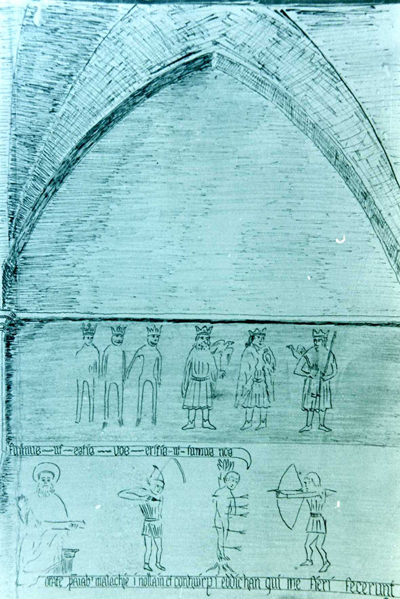 fuimus — ut — estis —— vos — eritis — ut — sumus nos
orate p aiab' malachie i nollain et conhwrp i eddichan qui me fieri fecerunt